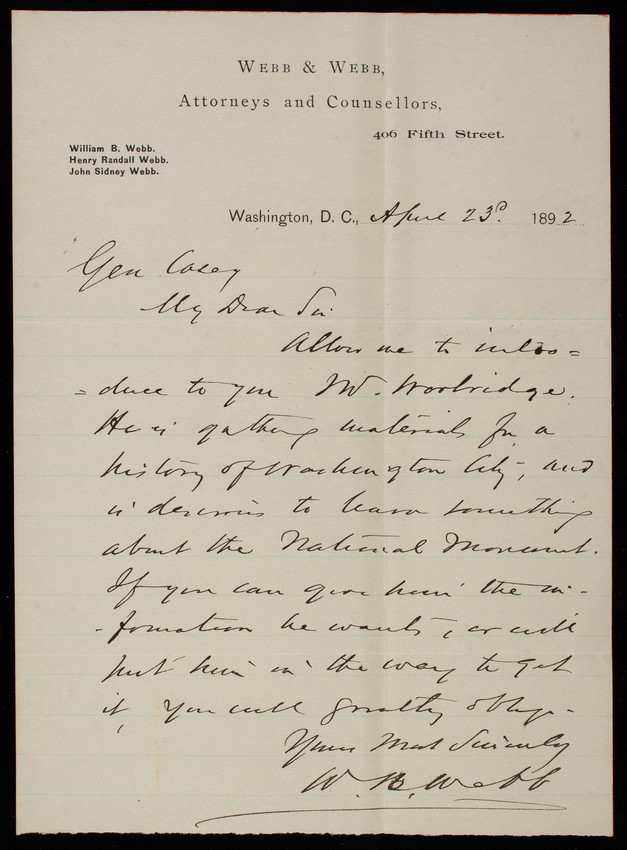 WEBB & WEBB,
Attorneys and Counsellors,
406 Fifth Street.
William B. Webb.
Henry Randall Webb.
John Sidney Webb.
Washington, D. C., April 23d. 1892
Gen Casey
My Dear Sir
Allow me to intro=
=duce to you Mr. Woolridge.
He is gathering materials for a
history of Washington City, and
is desirous to learn something
about the National Monument.
If you can give him the in-
-formation he wants, or will
put him in the way to get
it, you will greatly oblige-
Yours Most Sincerely
W. B. Webb